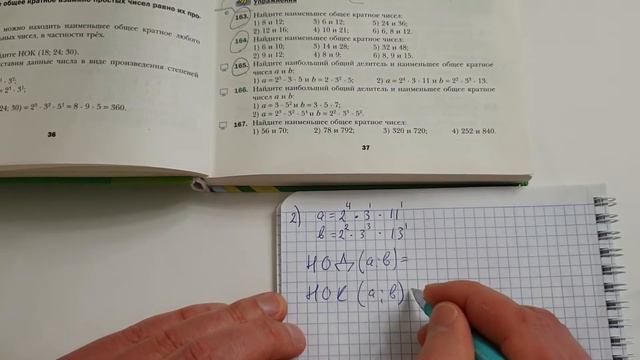 е общее кратное взаимно простых чисел равно их про-
можно находить наименьшее общее кратное любого
ьных чисел, в частности трёх.
дите НОК (18; 24; 30).
ставим данные числа в виде произведения степеней
· 3²;
· 3¹;
24; 30) = 2³ · 3² · 5¹ = 8 · 9 · 5 = 360.
36
Упражнения
163. Найдите наименьшее общее кратное чисел:
1) 8 и 12; 3) 6 и 12; 5) 24 и 36;
2) 12 и 16; 4) 10 и 21; 6) 6, 8 и 12.
164. Найдите наименьшее общее кратное чисел:
1) 6 и 10; 3) 14 и 28; 5) 32 и 48;
2) 9 и 12; 4) 8 и 9; 6) 8, 9 и 15.
165. Найдите наибольший общий делитель и наименьшее общее кратное
чисел a и b:
1) a = 2³ · 3 · 5 и b = 2 · 3² · 5; 2) a = 2⁴ · 3 · 11 и b = 2² · 3³ · 13.
166. Найдите наибольший общий делитель и наименьшее общее кратное
чисел a и b:
1) a = 3 · 5² и b = 3 · 5 · 7;
2) a = 2³ · 3² · 5⁴ и b = 2² · 3³ · 5².
167. Найдите наименьшее общее кратное чисел:
1) 56 и 70; 2) 78 и 792; 3) 320 и 720; 4) 252 и 840.
37
2) a = 2⁴ · 3¹ · 11¹
b = 2² · 3³ · 13¹
НОД (a; b) =
НОК (a; b)